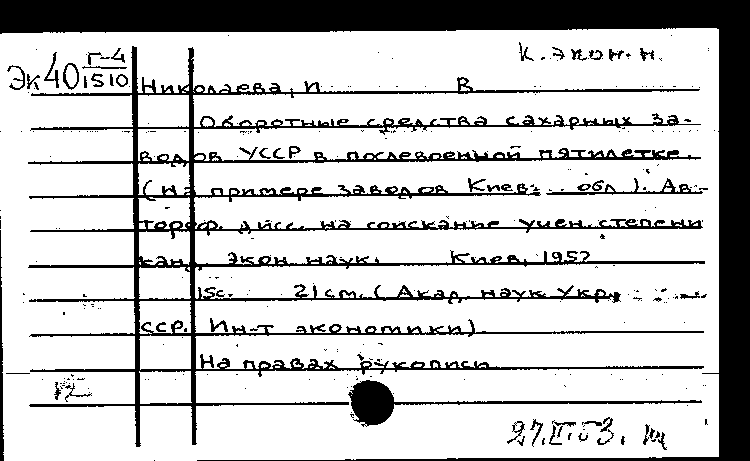 К. экон. н.
Эк40 Г-4
1510
Николаева, П В
Оборотные средства сахарных за-
водов УССР в послевоенной пятилетке.
(на примере заводов Киев. обл.). Ав-
тореф. дисс. на соискание учен. степени
канд. экон наук. Киев, 1952
15с. 21см. (Акад. наук Укр.
ССР. Ин-т экономики).
На правах рукописи
27.II.53.